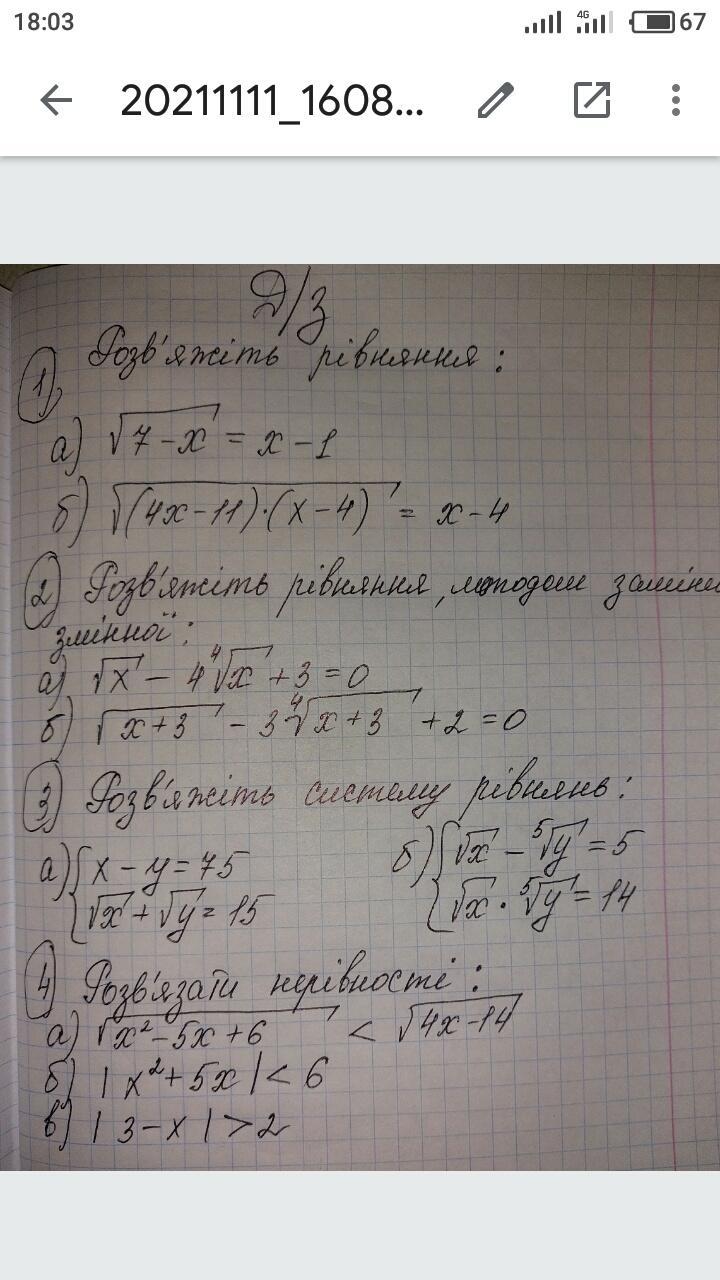 18:03
4G
67
20211111_1608...
Д/з
1) Розв'яжіть рівняння:
а) √(7-x) = x-1
б) √((4x-11)·(x-4)) = x-4
2) Розв'яжіть рівняння, методом заміни
змінної:
а) √x - 4⁴√x + 3 = 0
б) √(x+3) - 3⁴√(x+3) + 2 = 0
3) Розв'яжіть систему рівнянь:
а) { x - y = 75
√x + √y = 15
б) { √x - ⁵√y = 5
√x · ⁵√y = 14
4) Розв'язати нерівності:
а) √(x²-5x+6) < √(4x-14)
б) |x²+5x| < 6
в) |3-x| > 2